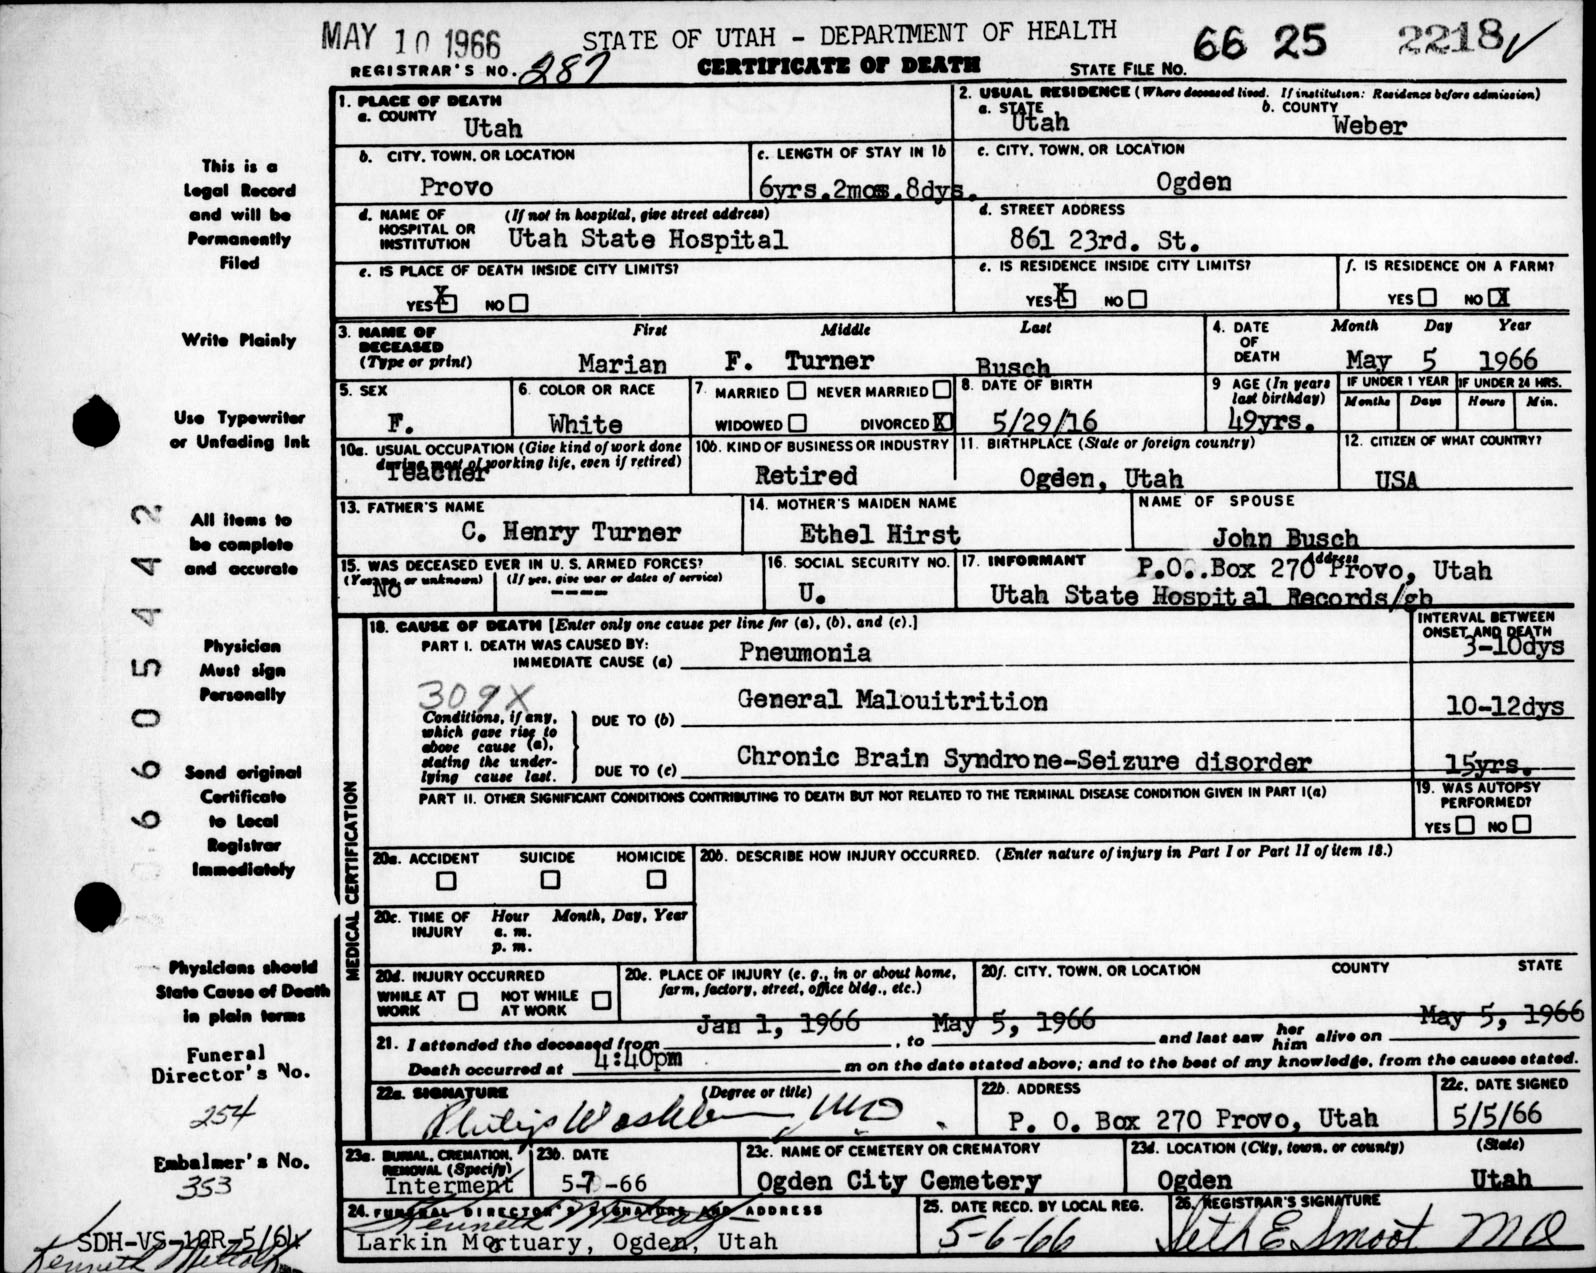 MAY 10 1966
STATE OF UTAH - DEPARTMENT OF HEALTH
66 25 2218 ✓
REGISTRAR'S NO. 287
CERTIFICATE OF DEATH
STATE FILE NO.
This is a
Legal Record
and will be
Permanently
Filed
Write Plainly
Use Typewriter
or Unfading Ink
All items to
be complete
and accurate
Physician
Must sign
Personally
Send original
Certificate
to Local
Registrar
Immediately
Physicians should
State Cause of Death
in plain terms
Funeral
Director's No.
254
Embalmer's No.
353
SDH-VS-10R-5/64
Kenneth
660 5442
1. PLACE OF DEATH
a. COUNTY
Utah
2. USUAL RESIDENCE (Where deceased lived. If institution: Residence before admission)
a. STATE
Utah
b. COUNTY
Weber
b. CITY, TOWN, OR LOCATION
Provo
c. LENGTH OF STAY IN 1b
6yrs.2mos.8dys.
c. CITY, TOWN, OR LOCATION
Ogden
d. NAME OF HOSPITAL OR INSTITUTION
(If not in hospital, give street address)
Utah State Hospital
d. STREET ADDRESS
861 23rd. St.
e. IS PLACE OF DEATH INSIDE CITY LIMITS?
YES X NO
e. IS RESIDENCE INSIDE CITY LIMITS?
YES X NO
f. IS RESIDENCE ON A FARM?
YES NO X
3. NAME OF DECEASED
(Type or print)
First Middle Last
Marian F. Turner Busch
4. DATE OF DEATH
Month Day Year
May 5 1966
5. SEX
F.
6. COLOR OR RACE
White
7. MARRIED NEVER MARRIED
WIDOWED DIVORCED X
8. DATE OF BIRTH
5/29/16
9 AGE (In years last birthday)
49yrs.
IF UNDER 1 YEAR
Months Days
IF UNDER 24 HRS.
Hours Min.
10a. USUAL OCCUPATION (Give kind of work done during most of working life, even if retired)
Teacher
10b. KIND OF BUSINESS OR INDUSTRY
Retired
11. BIRTHPLACE (State or foreign country)
Ogden, Utah
12. CITIZEN OF WHAT COUNTRY?
USA
13. FATHER'S NAME
C. Henry Turner
14. MOTHER'S MAIDEN NAME
Ethel Hirst
NAME OF SPOUSE
John Busch
15. WAS DECEASED EVER IN U. S. ARMED FORCES?
(Yes, no, or unknown) (If yes, give war or dates of service)
No ----
16. SOCIAL SECURITY NO.
U.
17. INFORMANT Address
P.O. Box 270 Provo, Utah
Utah State Hospital Records/gh
MEDICAL CERTIFICATION
18. CAUSE OF DEATH [Enter only one cause per line for (a), (b), and (c).]
INTERVAL BETWEEN
ONSET AND DEATH
PART I. DEATH WAS CAUSED BY:
IMMEDIATE CAUSE (a) Pneumonia
3-10dys
309X
Conditions, if any, which gave rise to above cause (a), stating the underlying cause last.
DUE TO (b) General Malouitrition
10-12dys
DUE TO (c) Chronic Brain Syndrone-Seizure disorder
15yrs.
PART II. OTHER SIGNIFICANT CONDITIONS CONTRIBUTING TO DEATH BUT NOT RELATED TO THE TERMINAL DISEASE CONDITION GIVEN IN PART I(a)
19. WAS AUTOPSY PERFORMED?
YES NO
20a. ACCIDENT SUICIDE HOMICIDE
20b. DESCRIBE HOW INJURY OCCURRED. (Enter nature of injury in Part I or Part II of item 18.)
20c. TIME OF INJURY
Hour Month, Day, Year
a. m.
p. m.
20d. INJURY OCCURRED
WHILE AT WORK NOT WHILE AT WORK
20e. PLACE OF INJURY (e. g., in or about home, farm, factory, street, office bldg., etc.)
20f. CITY, TOWN, OR LOCATION COUNTY STATE
21. I attended the deceased from Jan 1, 1966, to May 5, 1966 and last saw her him alive on May 5, 1966
Death occurred at 4:40pm m on the date stated above; and to the best of my knowledge, from the causes stated.
22a. SIGNATURE (Degree or title)
22b. ADDRESS
P. O. Box 270 Provo, Utah
22c. DATE SIGNED
5/5/66
23a. BURIAL, CREMATION, REMOVAL (Specify)
Interment
23b. DATE
5-7-66
23c. NAME OF CEMETERY OR CREMATORY
Ogden City Cemetery
23d. LOCATION (City, town, or county) (State)
Ogden Utah
24. FUNERAL DIRECTOR'S SIGNATURE AND ADDRESS
Kenneth
Larkin Mortuary, Ogden, Utah
25. DATE RECD. BY LOCAL REG.
5-6-66
26. REGISTRAR'S SIGNATURE
Seth E. Smoot MD